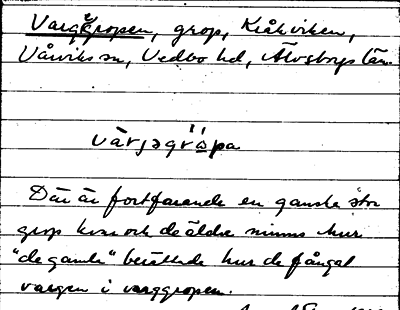 Varggropen, grop, Kråkviken,
Vårviks sn, Vedbo hd, Älvsborgs län.
Där är fortfarande en ganska stor
grop kvar och de äldre minns hur
"de gamla" berättade hur de fångat
vargen i varggropen.